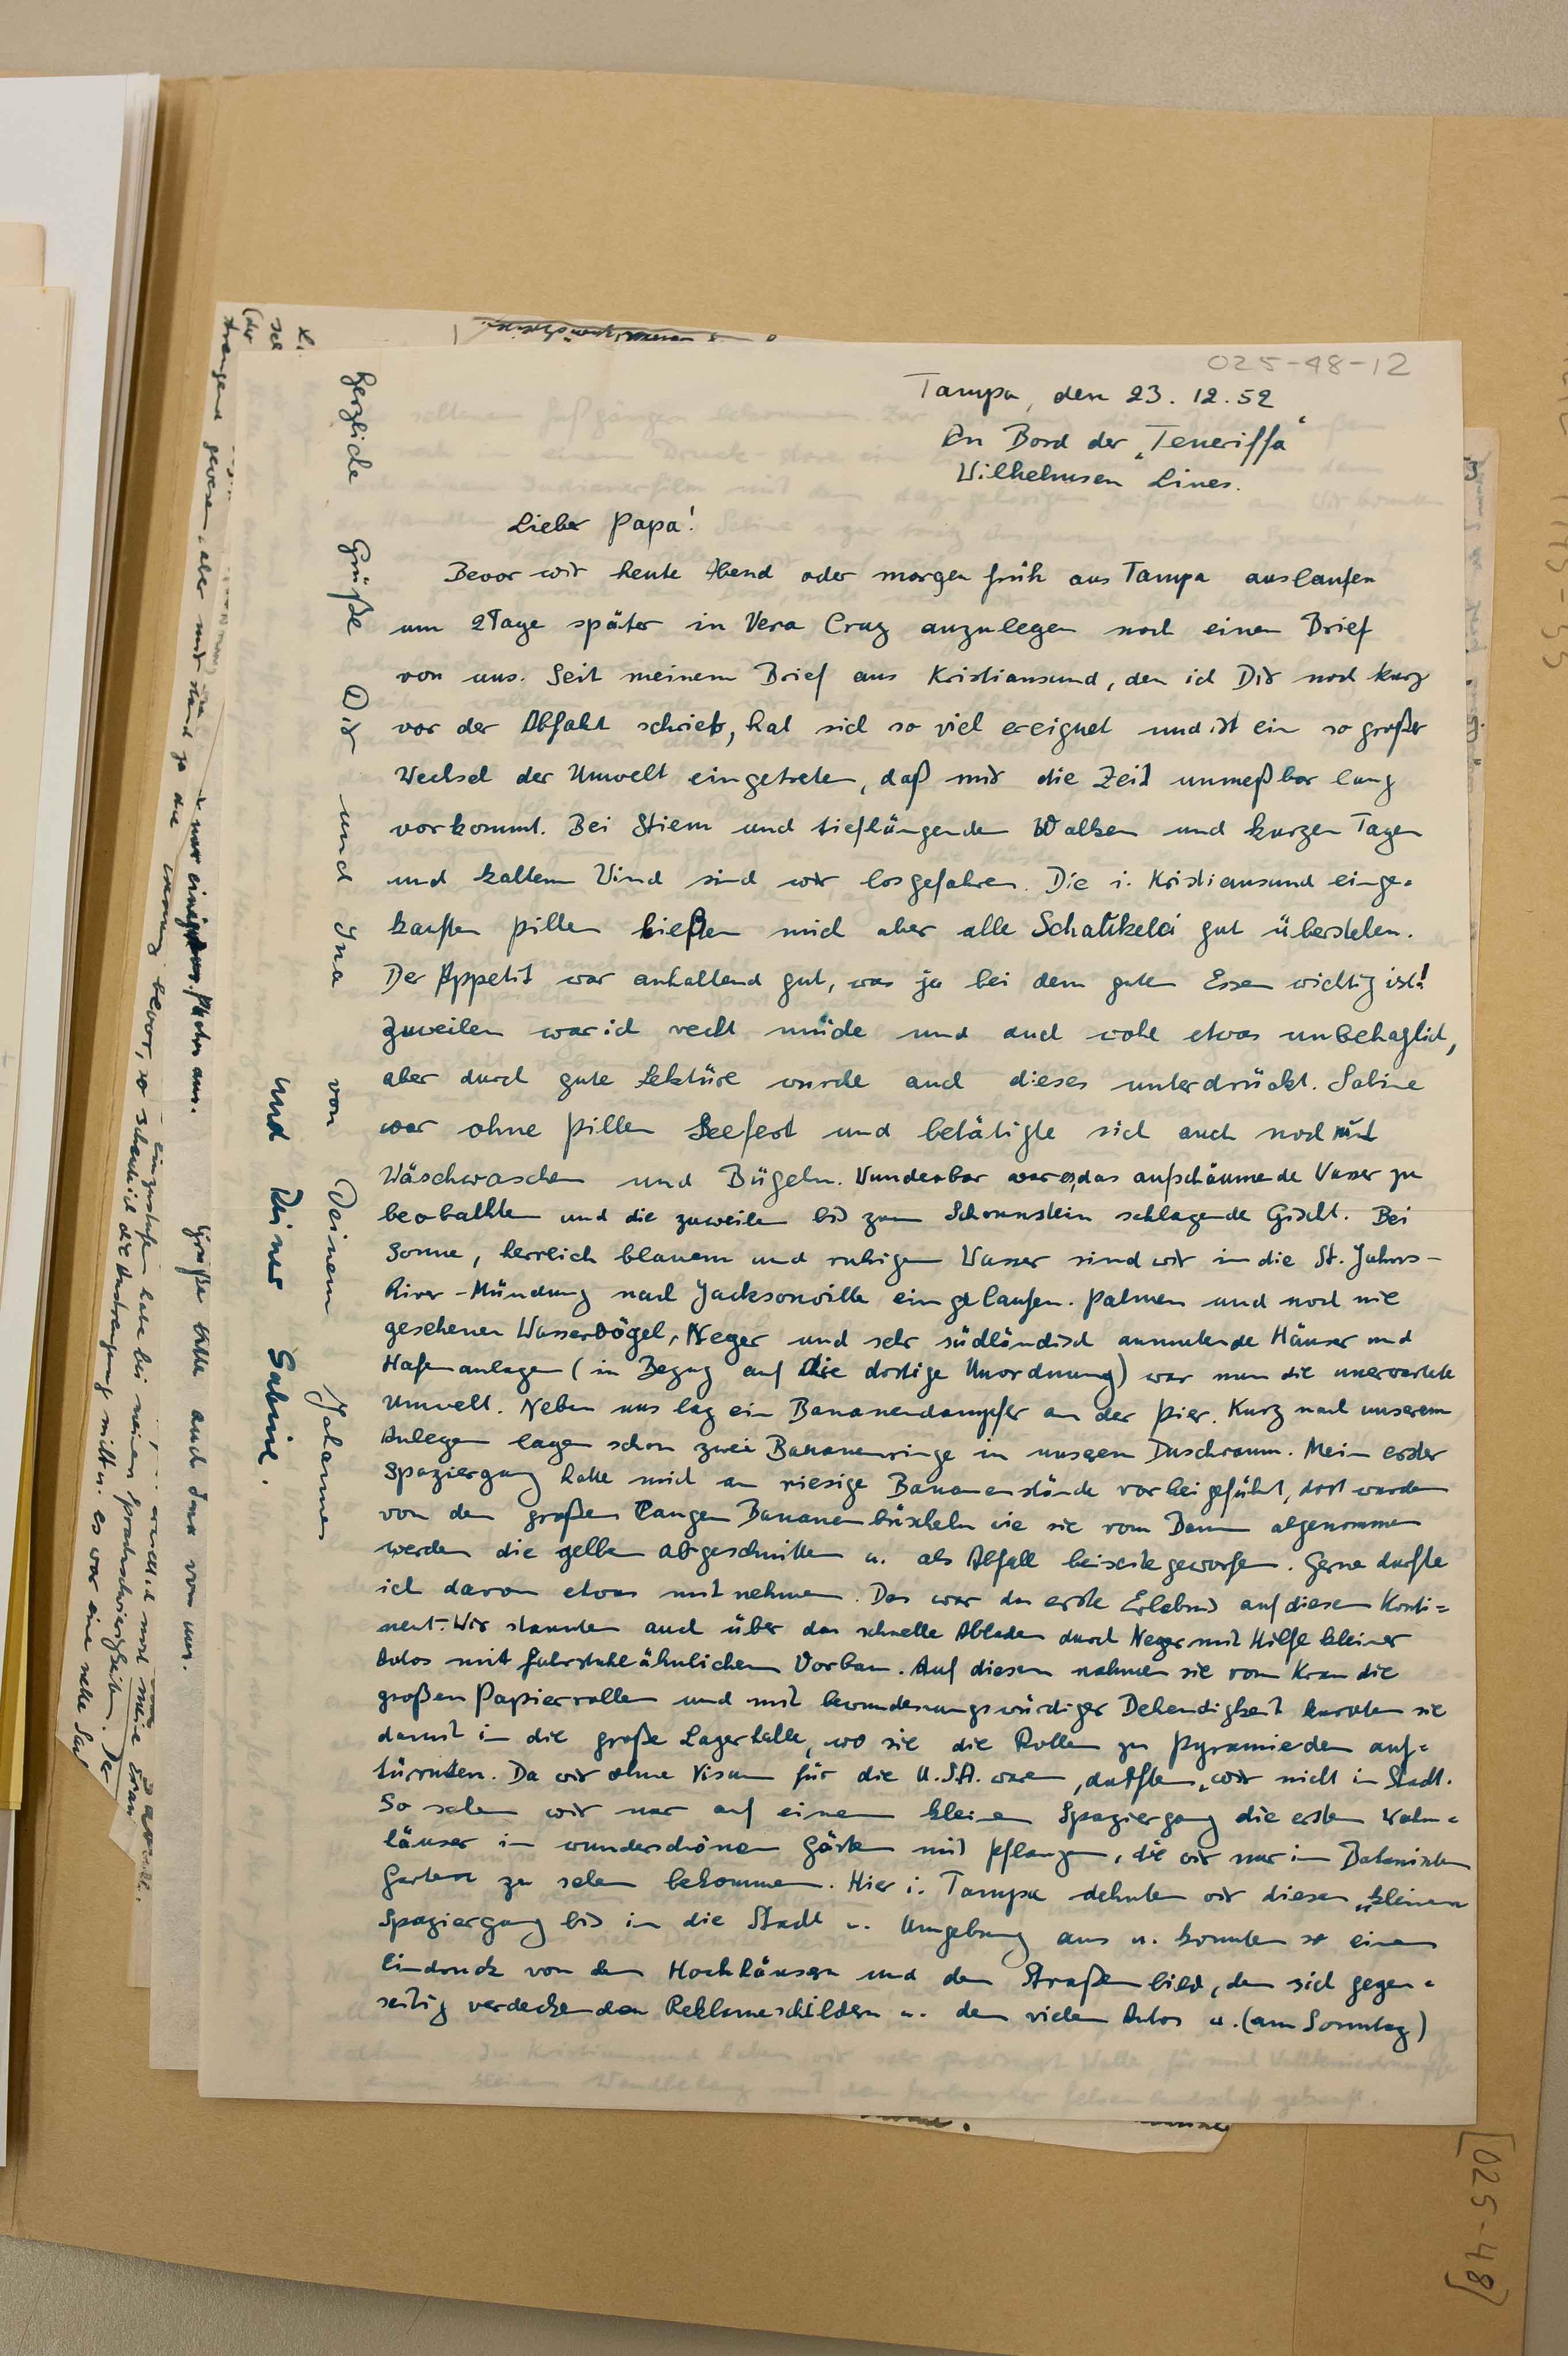 025-48-12
Tampa, den 23.12.52
An Bord der „Teneriffa“
Wilhelmsen Lines.
Lieber Papa!
Bevor wir heute Abend oder morgen früh aus Tampa auslaufen
um 2 Tage später in Vera Cruz anzulegen noch einen Brief
von uns. Seit meinem Brief aus Kristiansund, den ich Dir noch kurz
vor der Abfahrt schrieb, hat sich so viel ereignet und ist ein so großer
Wechsel der Umwelt eingetreten, daß mir die Zeit unmeßbar lang
vorkommt. Bei Sturm und tiefhängenden Wolken und kurzen Tagen
und kaltem Wind sind wir losgefahren. Die i. Kristiansund einge=
kauften Pillen ließen mich aber alle Schaukelei gut überstehen.
Der Appetit war anhaltend gut, was ja bei dem guten Essen wichtig ist!
Zuweilen war ich recht müde und auch wohl etwas unbehaglich,
aber durch gute Lektüre wurde auch dieses unterdrückt. Sabine
war ohne Pillen Seefest und betätigte sich auch noch mit
Wäschwaschen und Bügeln. Wunderbar war es, das aufschäumende Wasser zu
beobachten und die zuweilen bis zum Schornstein schlagende Gischt. Bei
Sonne, herrlich blauem und ruhigem Wasser sind wir in die St. Johns-
River-Mündung nach Jacksonville eingelaufen. Palmen und noch nie
gesehenen Wasservögel, Neger und sehr südländisch anmutende Häuser und
Hafenanlagen (in Bezug auf die dortige Unordnung) war nun die unerwartete
Umwelt. Neben uns lag ein Bananendampfer an der Pier. Kurz nach unserem
Anlegen lagen schon zwei Bananenringe in unserem Duschraum. Mein erster
Spaziergang hatte mich an riesige Bananenstände vorbei geführt, dort wurden
von den großen langen Bananenbüscheln wie sie vom Baum abgenommen
werden die gelben abgeschnitten u. als Abfall beiseite geworfen. Gerne durfte
ich davon etwas mitnehmen. Das war das erste Erlebnis auf diesem Konti=
nent. Wir staunten auch über das schnelle Abladen durch Neger mit Hilfe kleiner
Autos mit fahrstuhlähnlichem Vorbau. Auf diesem nahmen sie vom Kran die
großen Papierrollen und mit bewunderungswürdiger Behendigkeit kurvten sie
damit in die große Lagerhalle, wo sie die Rollen zu Pyramieden auf=
türmten. Da wir ohne Visum für die U.S.A. waren, durften wir nicht in Stadt.
So sahen wir nur auf einem kleinen Spaziergang die ersten Wohn=
häuser in wunderschönen Gärten mit Pflanzen, die wir nur im Botanischen
Garten zu sehen bekommen. Hier i. Tampa dehnten wir diesen „kleinen
Spaziergang bis in die Stadt u. Umgebung aus u. konnten so einen
Eindruck von den Hochhäusern und dem Straßenbild, den sich gegen=
seitig verdeckenden Reklameschildern u. den vielen Autos u. (am Sonntag)
Herzliche Grüße Dir und Ina von Deinem Johannes
und Deiner Sabine.
Grüße bitte auch Ina von uns.
[025-48]